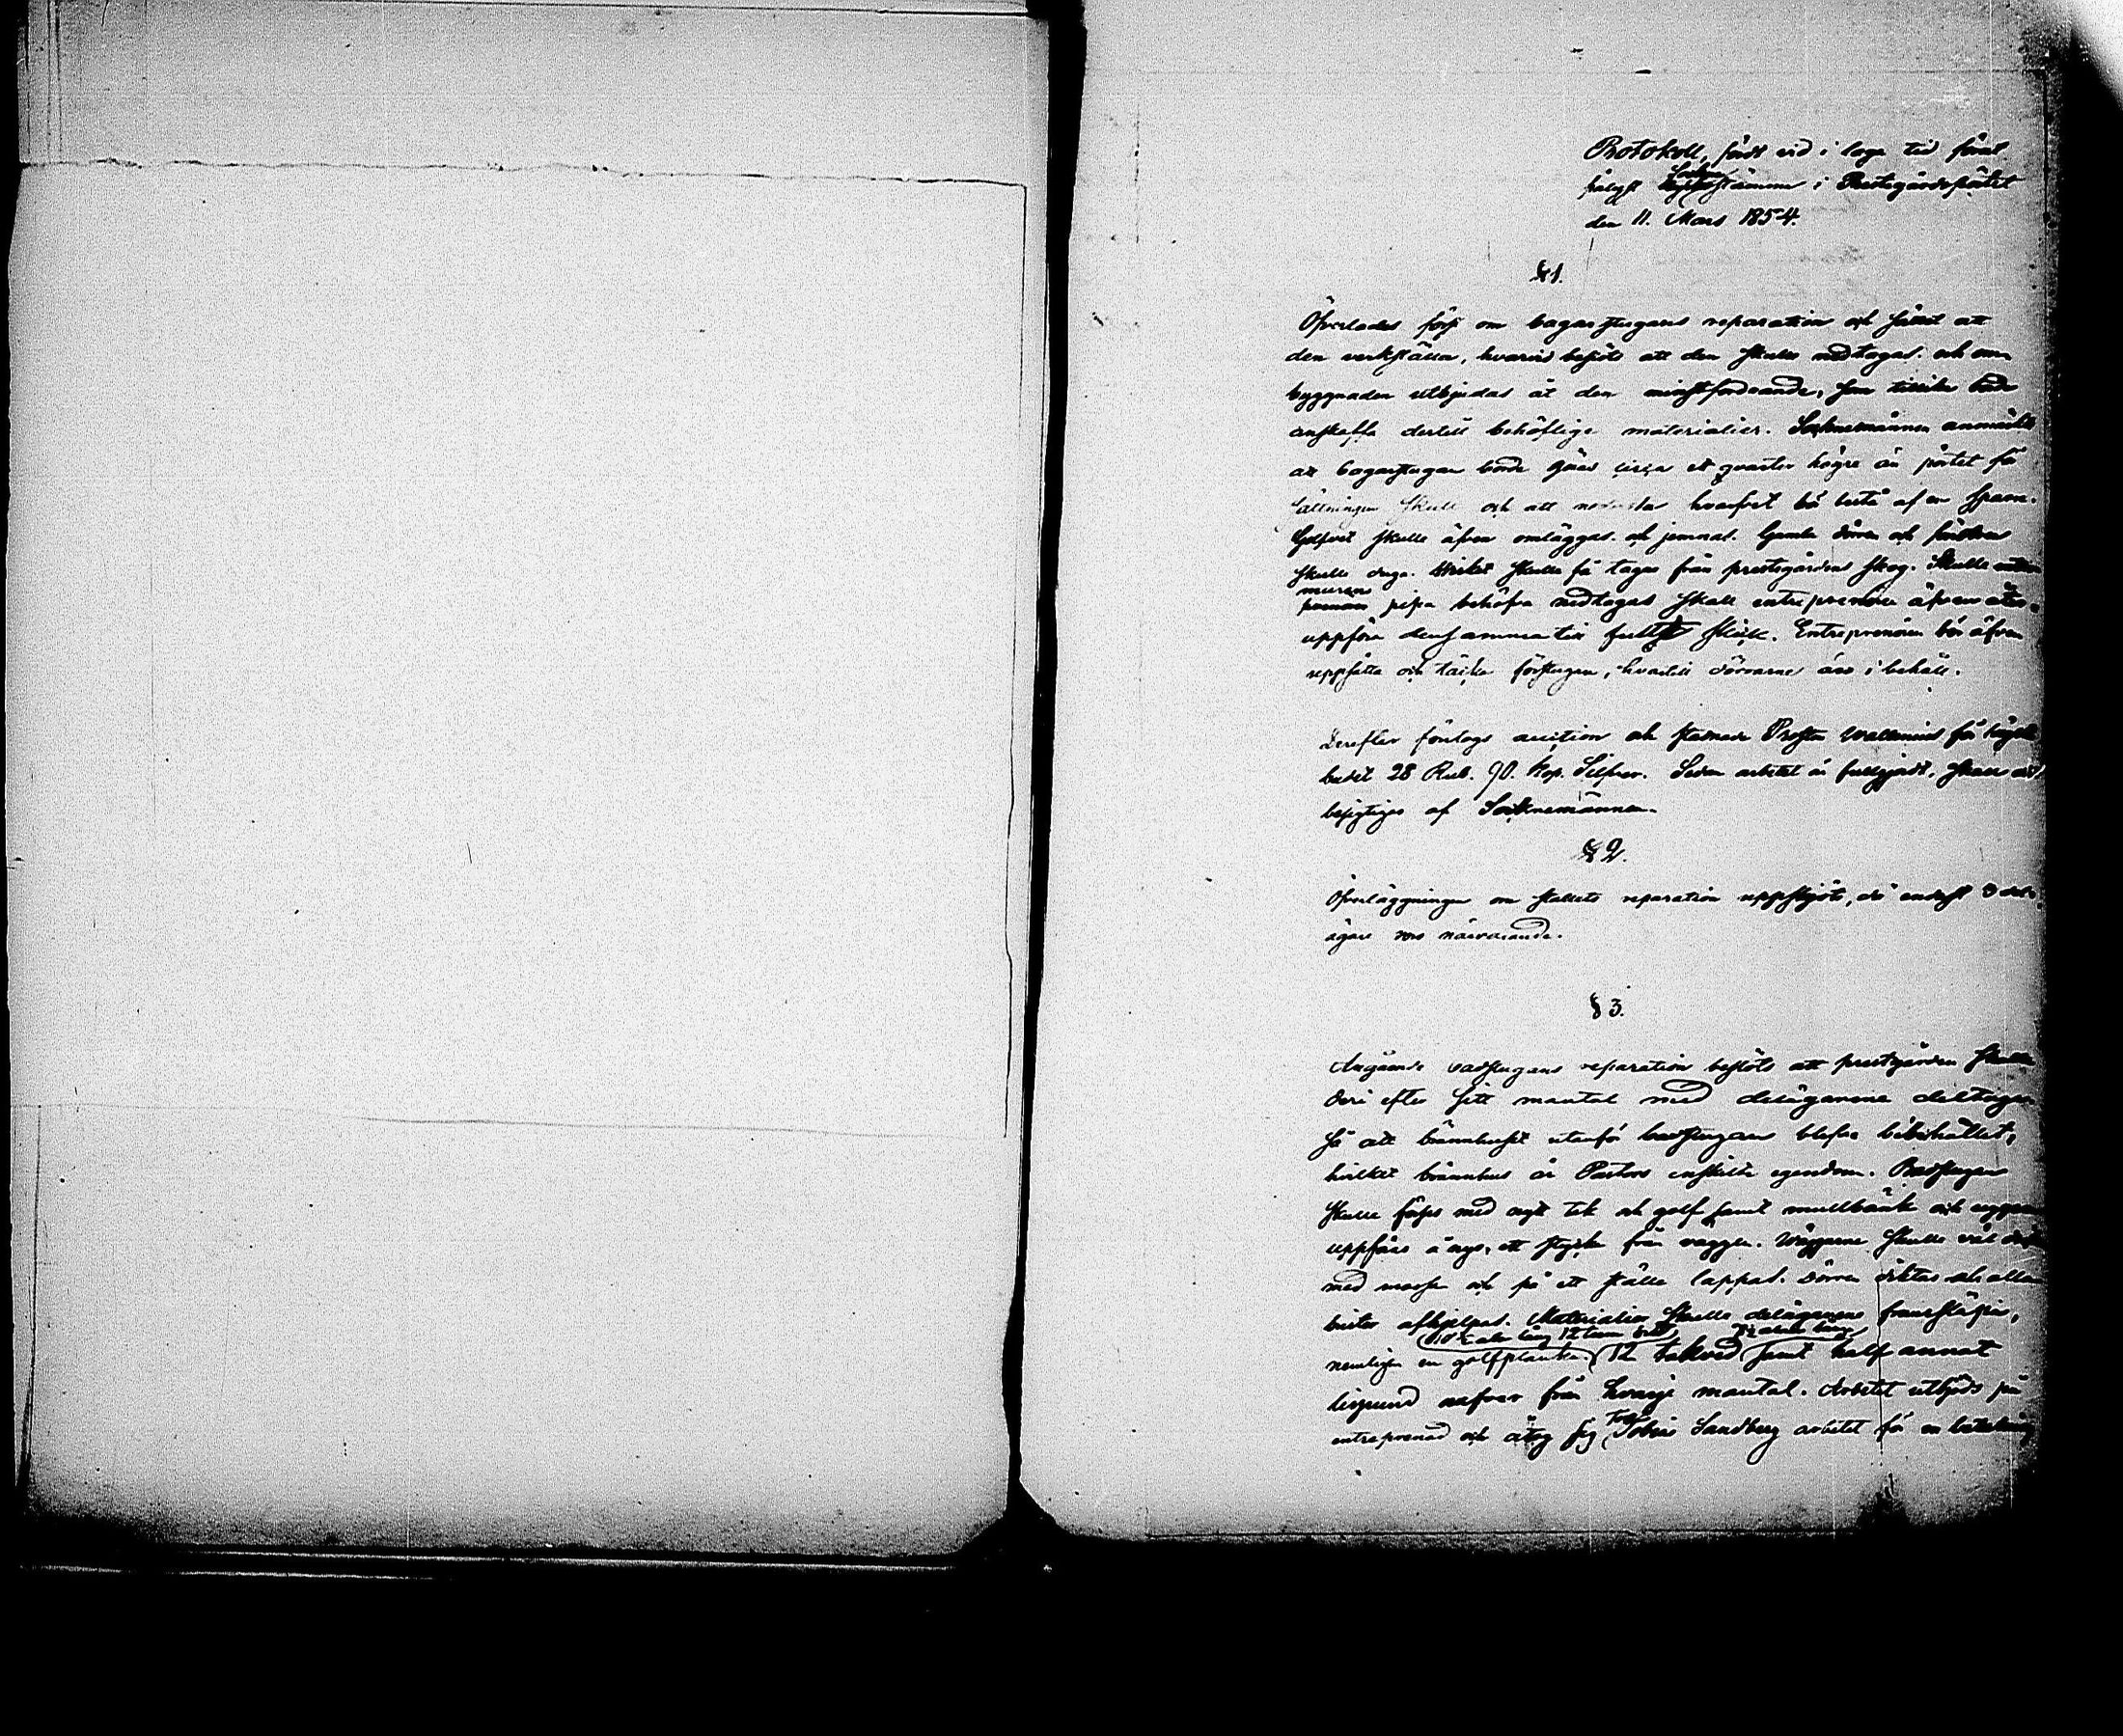 Protokoll, fördt vid i laga tid förut
hållen Sockne stämma i Prestegårdspörtet
den 11. Mars 1854.
§ 1.
Öfverlades först om bagarstugans reparation och sättet att
den verkställa, hvarvid beslöts att den skulle nedtagas och om
byggnaden utbjudas åt den minstfordrande, som tillika borde
anskaffa dertill behöflige materialier. Socknemännen anmärkte
att bagarstugan borde göras circa ett qvarter högre än pörtet för
sättningen skull och att nedersta hvarfvet bör bestå af en
Golfvet skulle äfven omläggas och jemnas. Gamla dörren och fönstren
skulle duga. Virket skulle få tagas från prestegårdens skog. Skulle
murens pipa behöfva nedtagas skall entreprenören äfven åter-
uppföra densamma till fullgodt skick. Entreprenören bör äfven
uppsätta och täcka förstugan, hvartill dörrarne äro i behåll.
Derefter företogs auction och stannade Prosten Wallenius för
budet 28 Rub. 90. Kop. Silfver. Sedan arbetet är fullgjordt, skall det
besigtigas af Socknemännen.
§ 2.
Öfverläggningen om stallets reparation uppskjöts, då endast 3 del-
ägare voro närvarande.
§ 3.
Angående badstugans reparation beslöts att prestgården skulle
deri efter sitt mantal med delägarene deltaga
så att brännhuset utanför badstugan blefve bibehållet,
hvilket brännhus är Pastors enskilta egendom. Badstugan
skulle förses med nytt tak och golf samt mullbänk och
uppföras å nyo, ett stycke från väggen. Wäggarne skulle väl
med mossa och på ett ställe lappas. Dörren och alla
brister afhjelpas. Materialier skulle delägarene framsläpa,
aln lång 12 tum bred aln lång
nemligen en golfplanka 12 takved samt half annat
lispund näfver från hvarje mantal. Arbetet utbjöds på
entreprenad och åtog sig Tobias Sandberg arbetet för en betalning